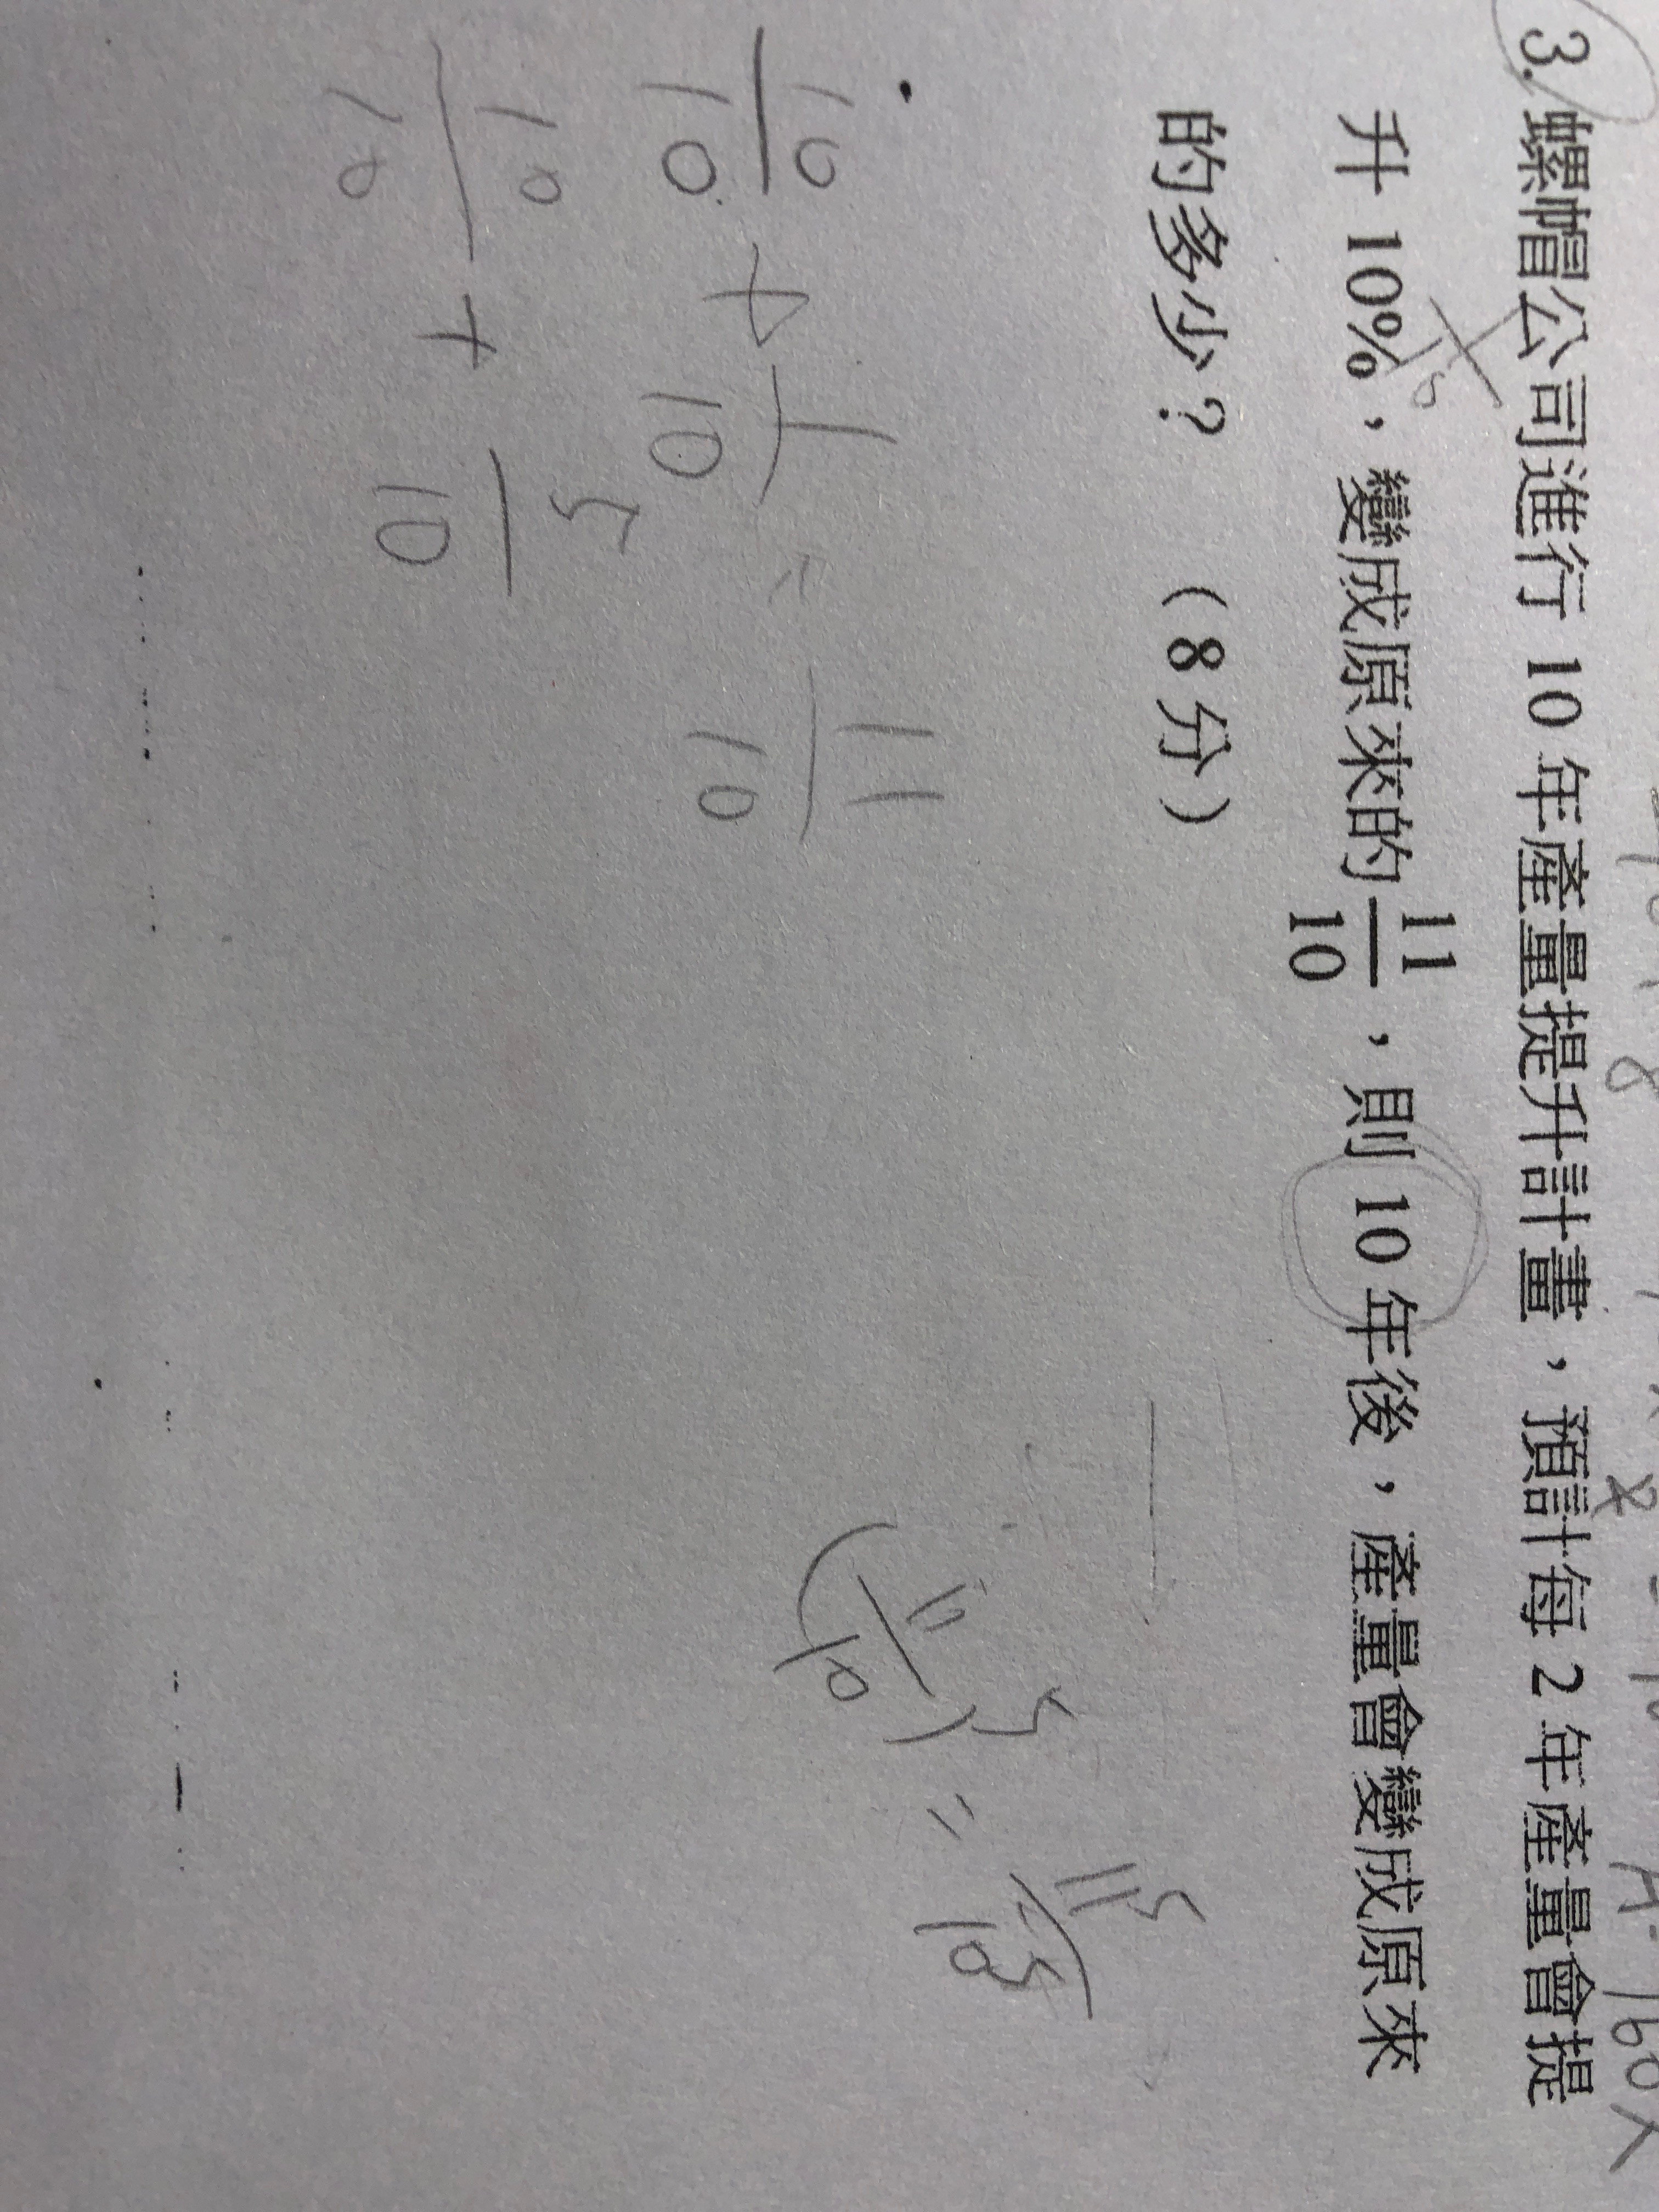 3. 螺帽公司進行 10 年產量提升計畫，預計每 2 年產量會提
升 10%，變成原來的 11/10，則 10 年後，產量會變成原來
的多少？ （8 分）
10/10 + 1/10 = 11/10
10/10 + 5/10
(11/10)^5 = 11^5/10^5